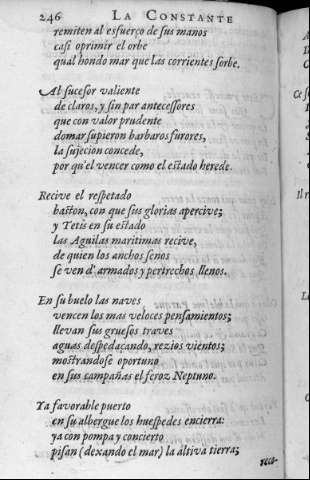 246 LA CONSTANTE
remiten al esfuerço de sus manos
casi oprimir el orbe
qual hondo mar que las corrientes sorbe.
Al sucesor valiente
de claros, y sin par antecessores
que con valor prudente
domar supieron barbaros furores,
la sujecion concede,
por qu'el vencer como el estado herede.
Recive el respetado
baston, con que sus glorias apercive;
y Tetis en su estado
las Aguilas maritimas recive,
de quien los anchos senos
se ven d'armados y pertrechos llenos.
En su buelo las naves
vencen los mas veloces pensamientos;
llevan sus gruesos traves
aguas despedaçando, rezios vientos;
mostrandose oportuno
en sus campañas el feroz Neptuno.
Ya favorable puerto
en su albergue los huespedes encierra:
ya con pompa y concierto
pisan (dexando el mar) la altiva tierra;
reco-